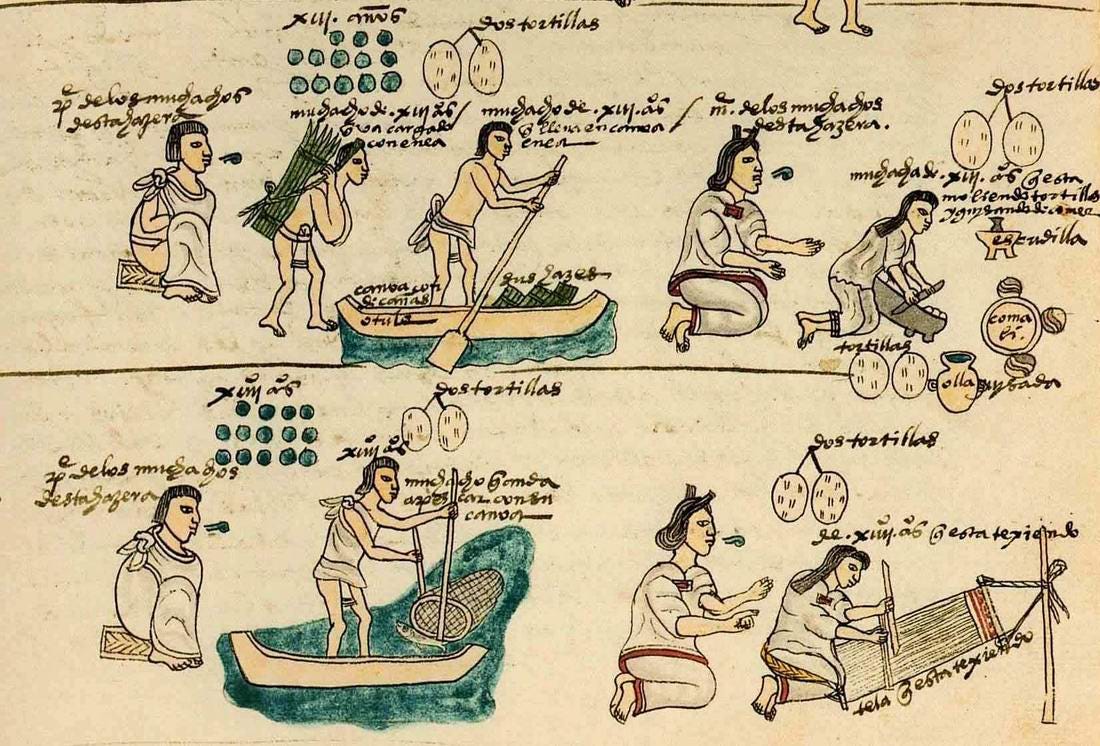 xiii. años
dos tortillas
pe de los muchachos
desta hazera
muchacho de .xiii aos
q va cargado
con enea
muchacho de .xiii. aos
q lleva en canoa
enea
me. de los muchachos
desta hazera.
dos tortillas
muchacha de .xiii. aos q esta
moliendo tortillas
y guisando de comer
escudilla
canoa con
de cañas
o tule
sus hazes
comali.
tortillas
olla guisada
xiiii aos
dos tortillas
pe de los muchachos
desta hazera
xiiii aos
muchacho q anda
a pescar con su
canoa
dos tortillas
de .xiiii aos q esta texiendo
tela q esta texiendo